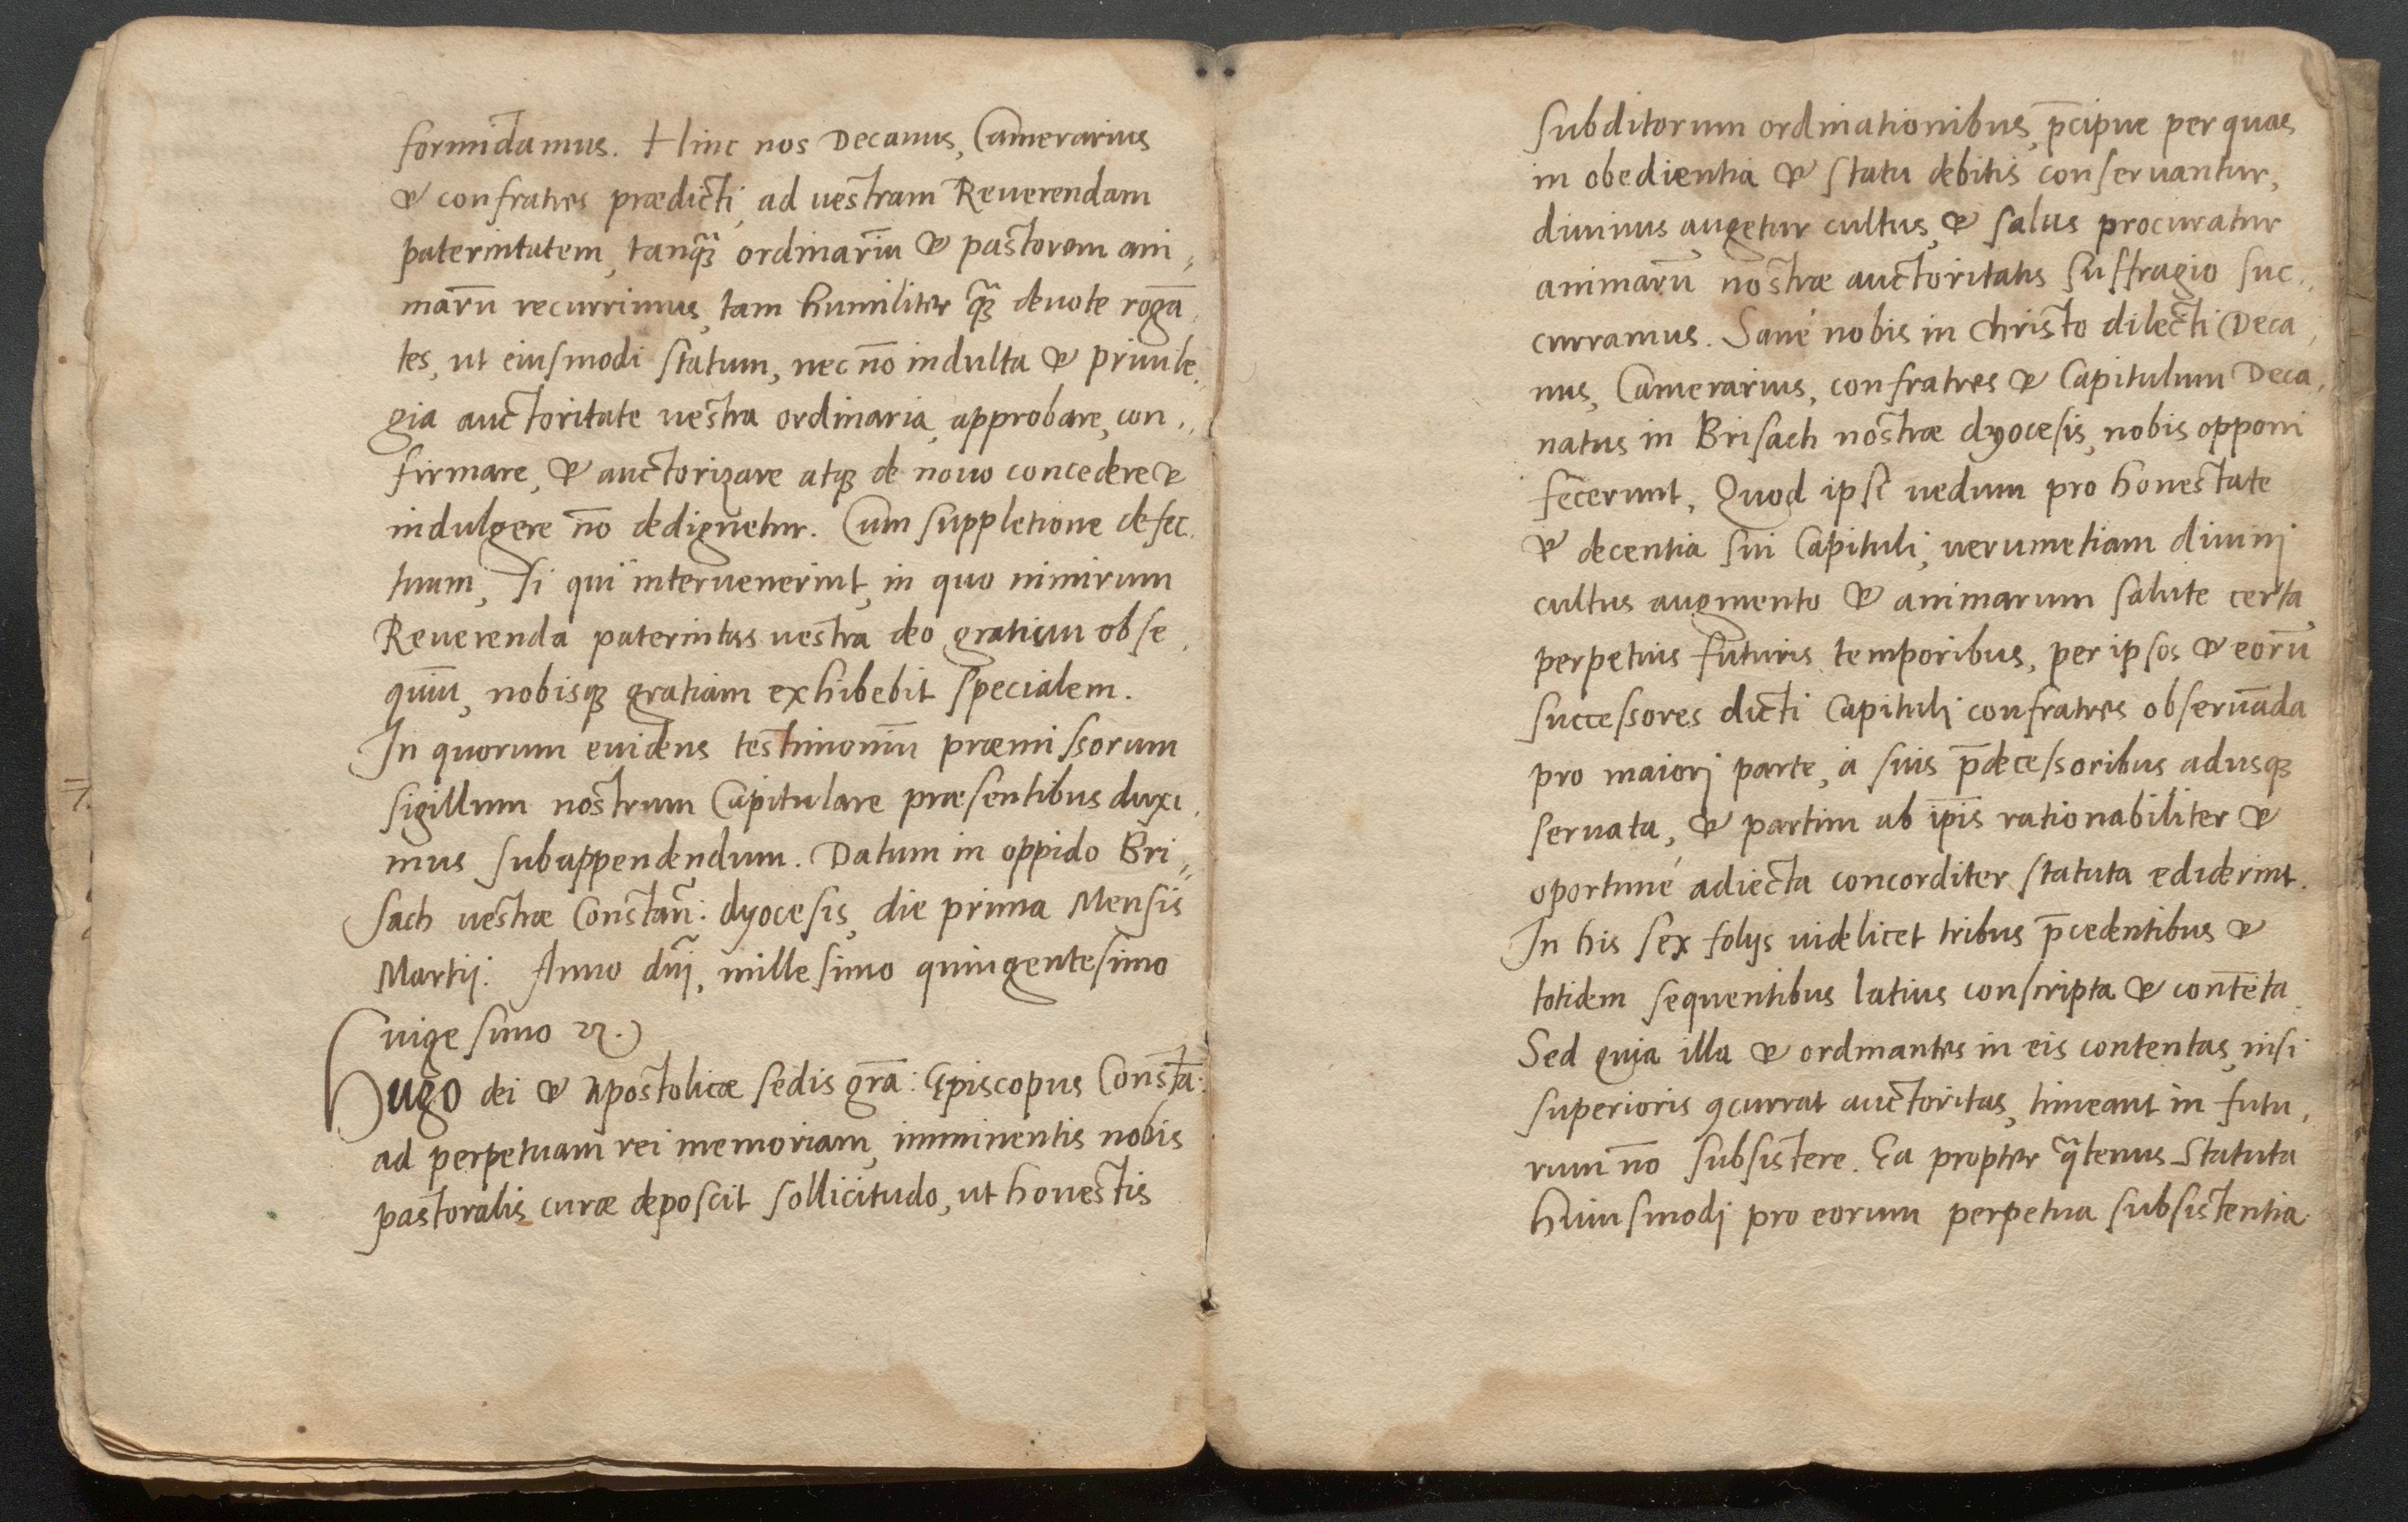 formidamus. Hinc nos Decanus, Camerarius
& confratres prædicti, ad uestram Reuerendam
paterintatem, tanq̃ꝫ ordinariũ & pastorem ani„
marũ recurrimus, tam humiliter q̃ꝫ deuote rogã,
tes, ut eiusmodi statum, nec nõ indulta & priuile„
gia auctoritate uestra ordinaria, approbare, con„
firmare, & auctorizare atqꝫ de nouo concedere &
indulgere nõ dedignetur. Cum suppletione defec„
tuum, si qui interuenerint, in quo nimirum
Reuerenda paterintas uestra deo gratium obse,
quiũ, nobisqꝫ gratiam exhibebit specialem.
In quorum euidens testimoniũ præmissorum
sigillum nostrum Capitulare præsentibus duxi,
mus subappendendum. Datum in oppido Bri„
sach uestræ Constañ: dyocesis, die prima Mensis
Martij: Anno dñj, millesimo quingentesimo
uigesimo ꝛc.
Hugo dei & apostolicæ sedis grã: Episcopus Constã:
ad perpetuam rei memoriam, imminentis nobis
pastoralis curæ deposcit sollicitudo, ut honestis
subditorum ordinationibus, p̃cipue per quas
in obedientia & statu debitis conseruantur,
diuinus augetur cultus, & salus procuratur
animarũ nostræ auctoritatis suffragio suc„
curramus. Sanè nobis in Christo dilecti Deca,
nus, Camerarius, confratres & Capitulum Deca,
natus in Brisach nostræ dyocesis, nobis opponi
fecerunt, Quod ipsi nedum pro honestate
& decentia sui Capituli, uerumetiam diuinj
cultus augmento & animarum salute certa
perpetuis futuris temporibus, per ipsos & eorũ
successores dicti Capitulj confratres obseruãda
pro maiorj parte, à suis p̃decessoribus adusqꝫ
seruata, & partim ab ip̃is rationabiliter &
oportunè adiecta concorditer statuta ediderint.
In his sex folijs uidelicet tribus p̃cedentibus &
totidem sequentibus latius conscripta & contẽta
Sed quia illa & ordinantes in eis contentas, nisi
superioris ꝯcurrat auctoritas, timeant in futu,
rum nõ subsistere. Ea propter q̃tenus Statuta
huiusmodj pro eorum perpetua subsistentia